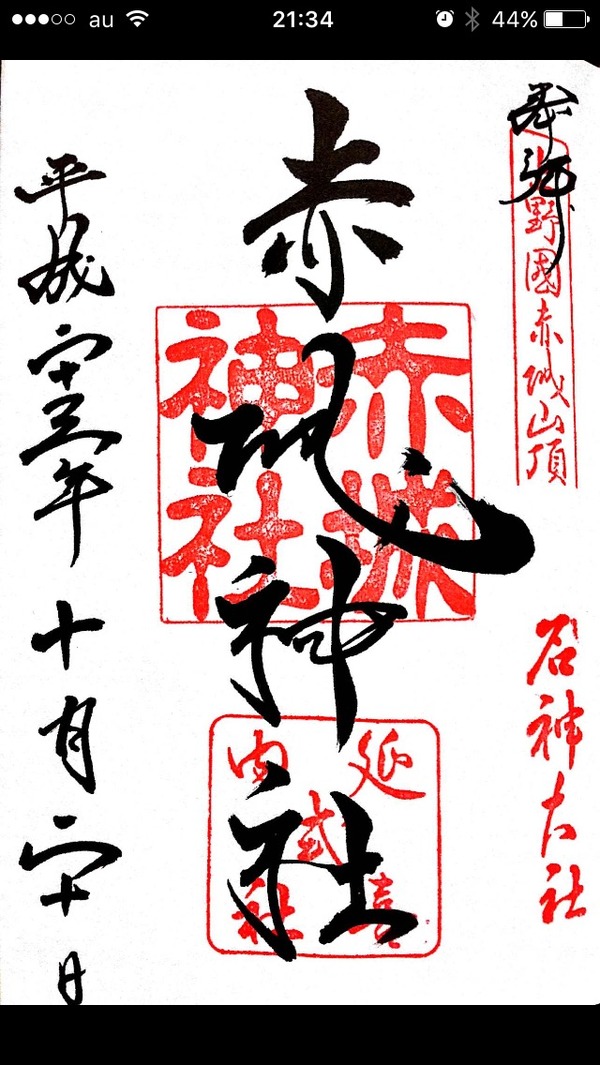 au 21:34 44%
奉拝
上野國赤城山頂
名神大社
赤城神社
赤城神社
延喜式内社
平成二十三年十月二十日